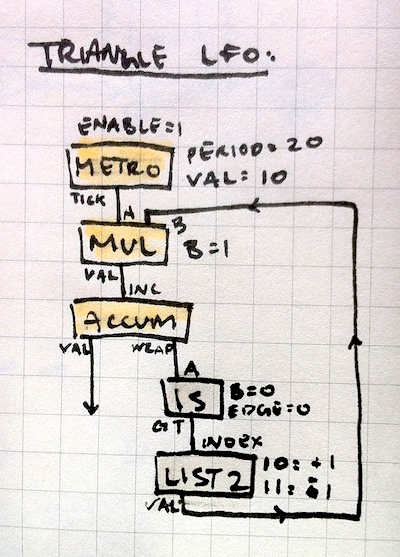 TRIANGLE LFO.
ENABLE=1
METRO
PERIOD=20
VAL=10
TICK
A
B
MUL
B=1
VAL
INC
ACCUM
VAL
WRAP
A
IS
B=0
EDGE=0
GT
INDEX
LIST2
I0: +1
I1: -1
VAL